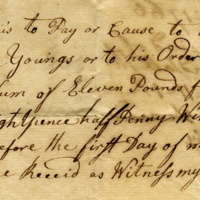 is to Pay or Cause to
Youngs or to his Order
um of Eleven Pounds
ight pence half Penny Wi
efore the first Day of m
e Receid as Witness my